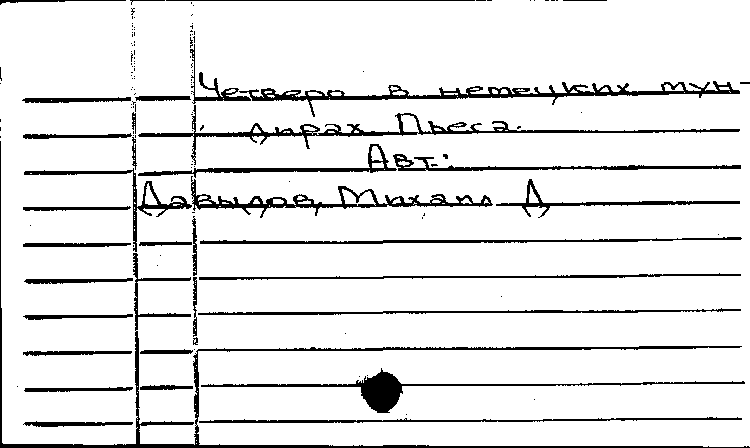 Четверо в немецких мун-
дирах. Пьеса.
Авт.:
Давыдов, Михаил Д